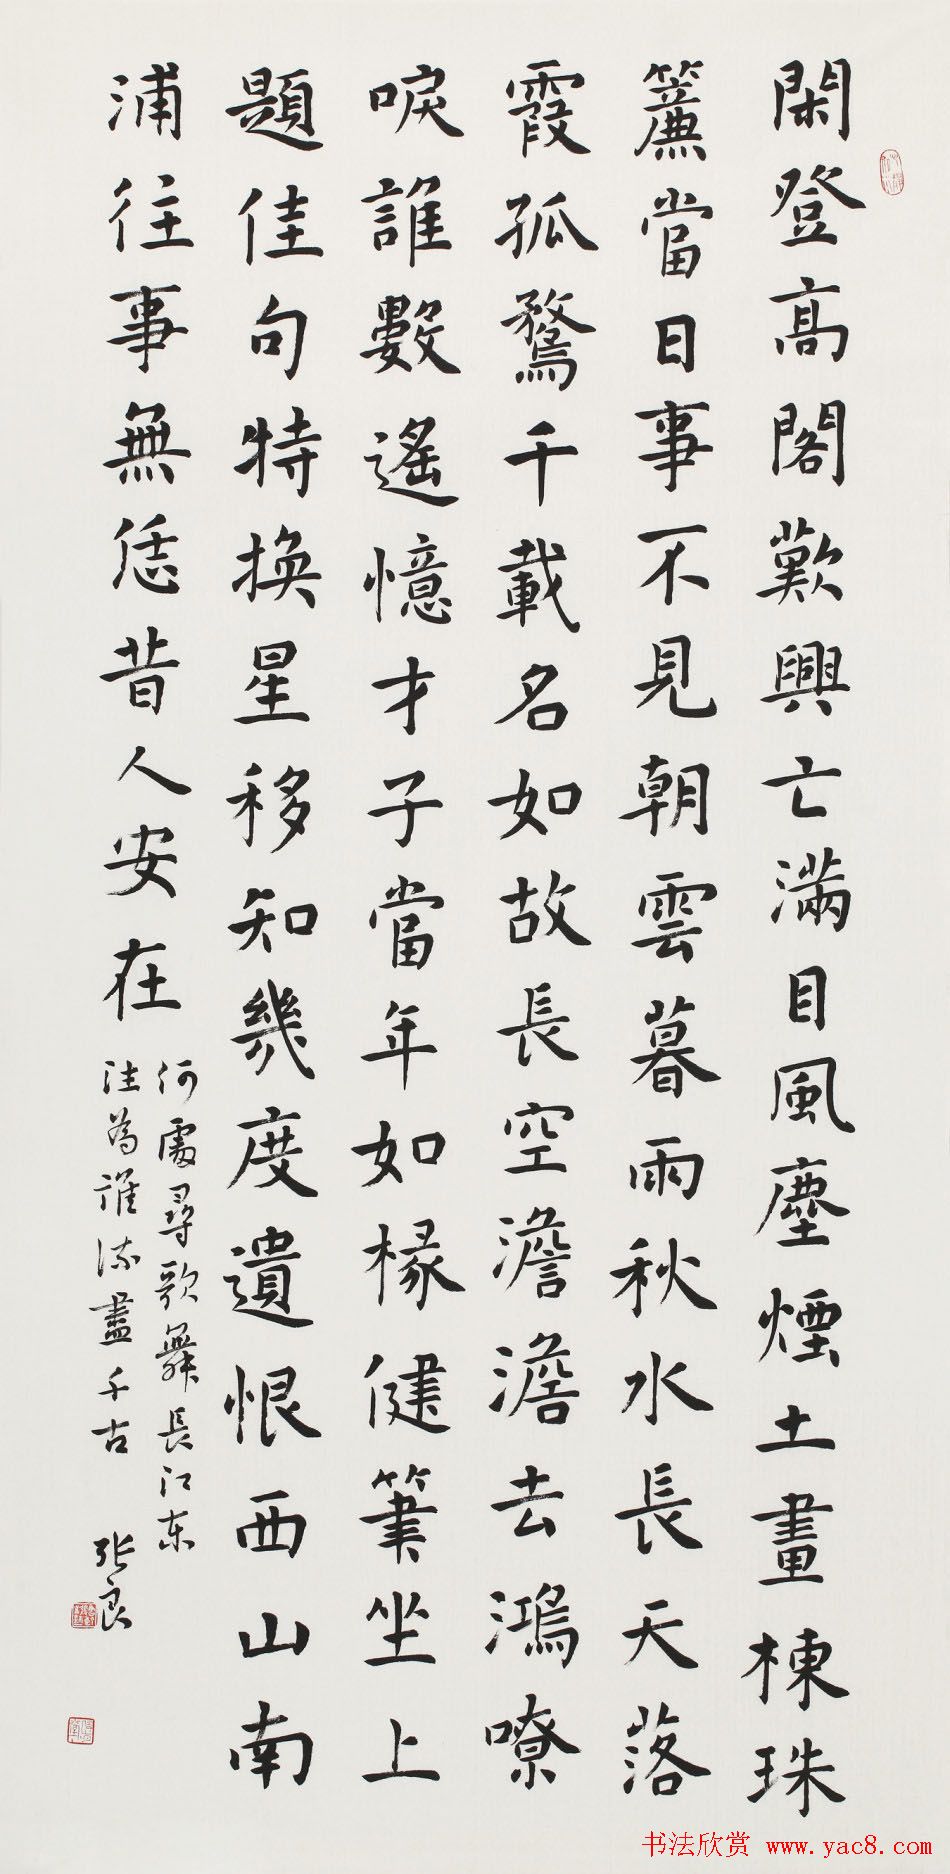 閑登高閣歎興亡滿目風塵煙土畫棟珠
簾當日事不見朝雲暮雨秋水長天落
霞孤鶩千載名如故長空澹澹去鴻嘹
唳誰數遙憶才子當年如椽健筆坐上
題佳句特換星移知幾度遺恨西山南
浦往事無恁昔人安在
何處尋歌舞長江東
注為誰流盡千古 張良
书法欣赏 www.yac8.com